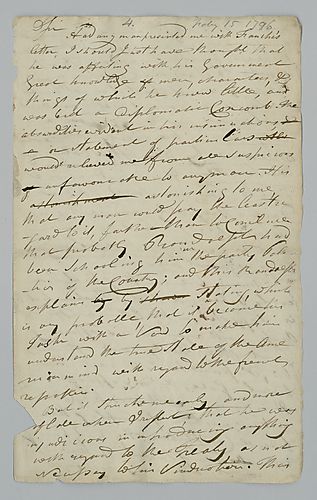 Sir 4. Feby 15 1796
Had any man presented me with Franchis
letter I should not have thought that
he was affecting with his Government
Great knowledge of men, characters &
things of which he knew little, and
was but a Diplomatic Coxcomb. The
absurdities evident in his insinuations
or statement of parties
would relieved me from all suspicions
of a favourable to any man. It is
astonishing to me
that any man would pay the least re
gard to it, farther than to convince me
that probably Randolph had
been schooling him in the party Poli
tics of the Country; and this Randolph
explains by stating, which
is very probable that is become his
Task with a View to make him
understand the true State of the Ame
rican mind with regard to the french
republic.
But it struck me early and more
that he was
injudicious in producing anything
with regard to the Treaty as not
necessary to his Vindication. This